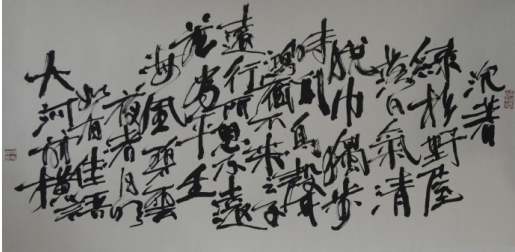 沉著
綠杉野屋
落日氣清
脫巾獨步
時聞鳥聲
鴻雁不來之子
遠行所思不遠
若為平生
海風碧雲
夜渚月明
如有佳語
大河前橫